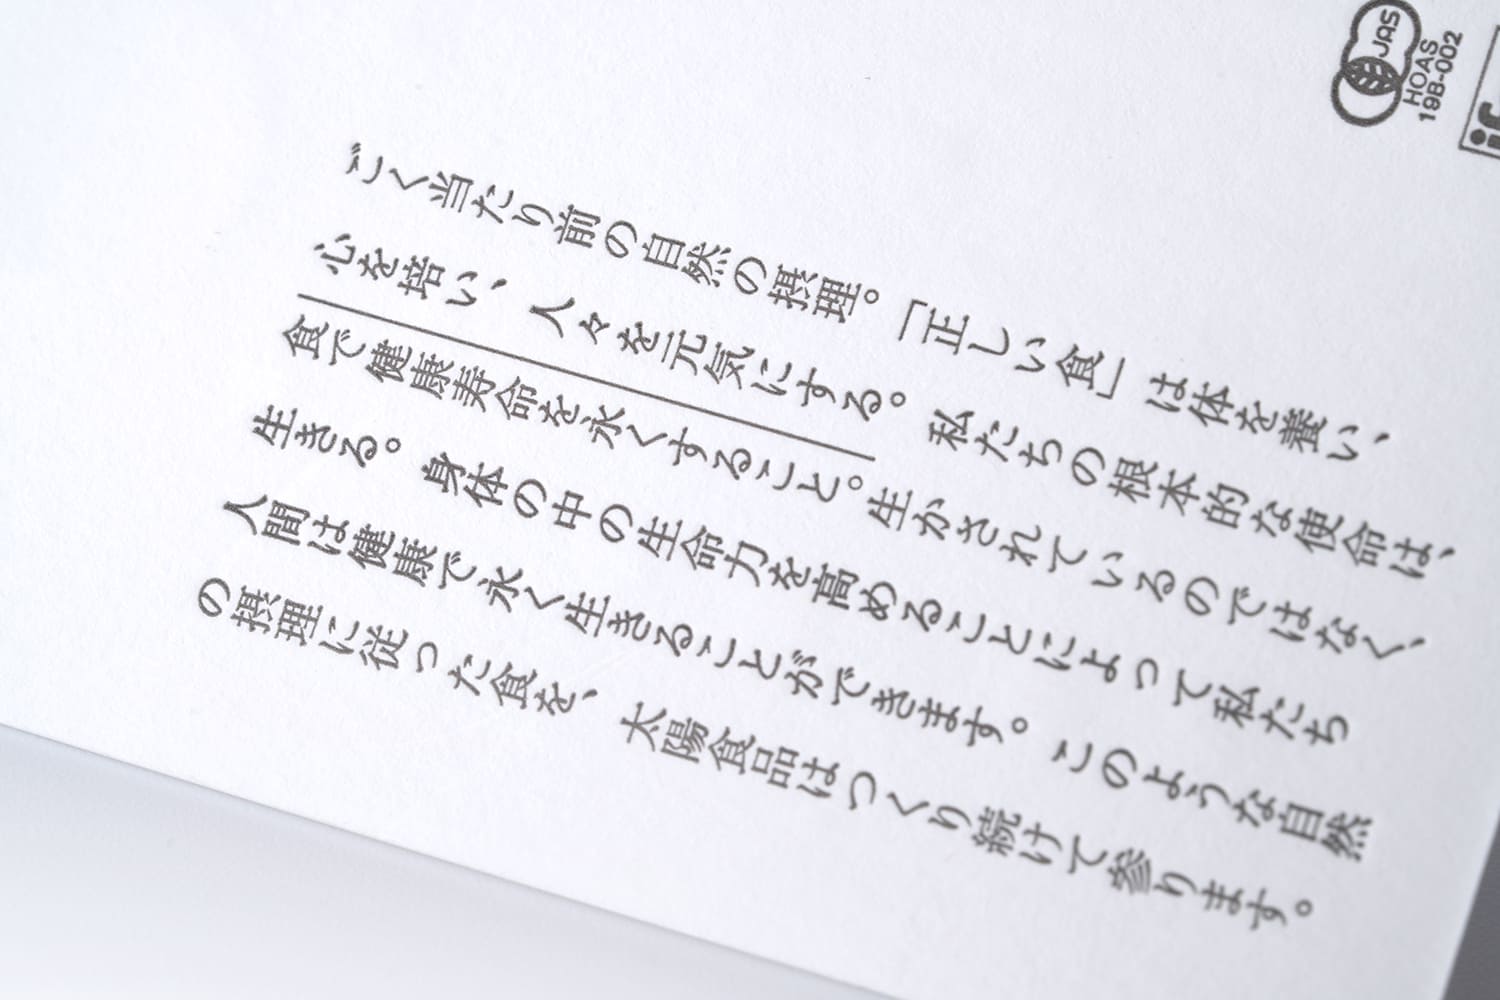 JAS
HOAS
19B-002
ごく当たり前の自然の摂理。「正しい食」は体を養い、
心を培い、人々を元気にする。私たちの根本的な使命は、
食で健康寿命を永くすること。生かされているのではなく、
生きる。身体の中の生命力を高めることによって私たち
人間は健康で永く生きることができます。このような自然
の摂理に従った食を、太陽食品はつくり続けて参ります。